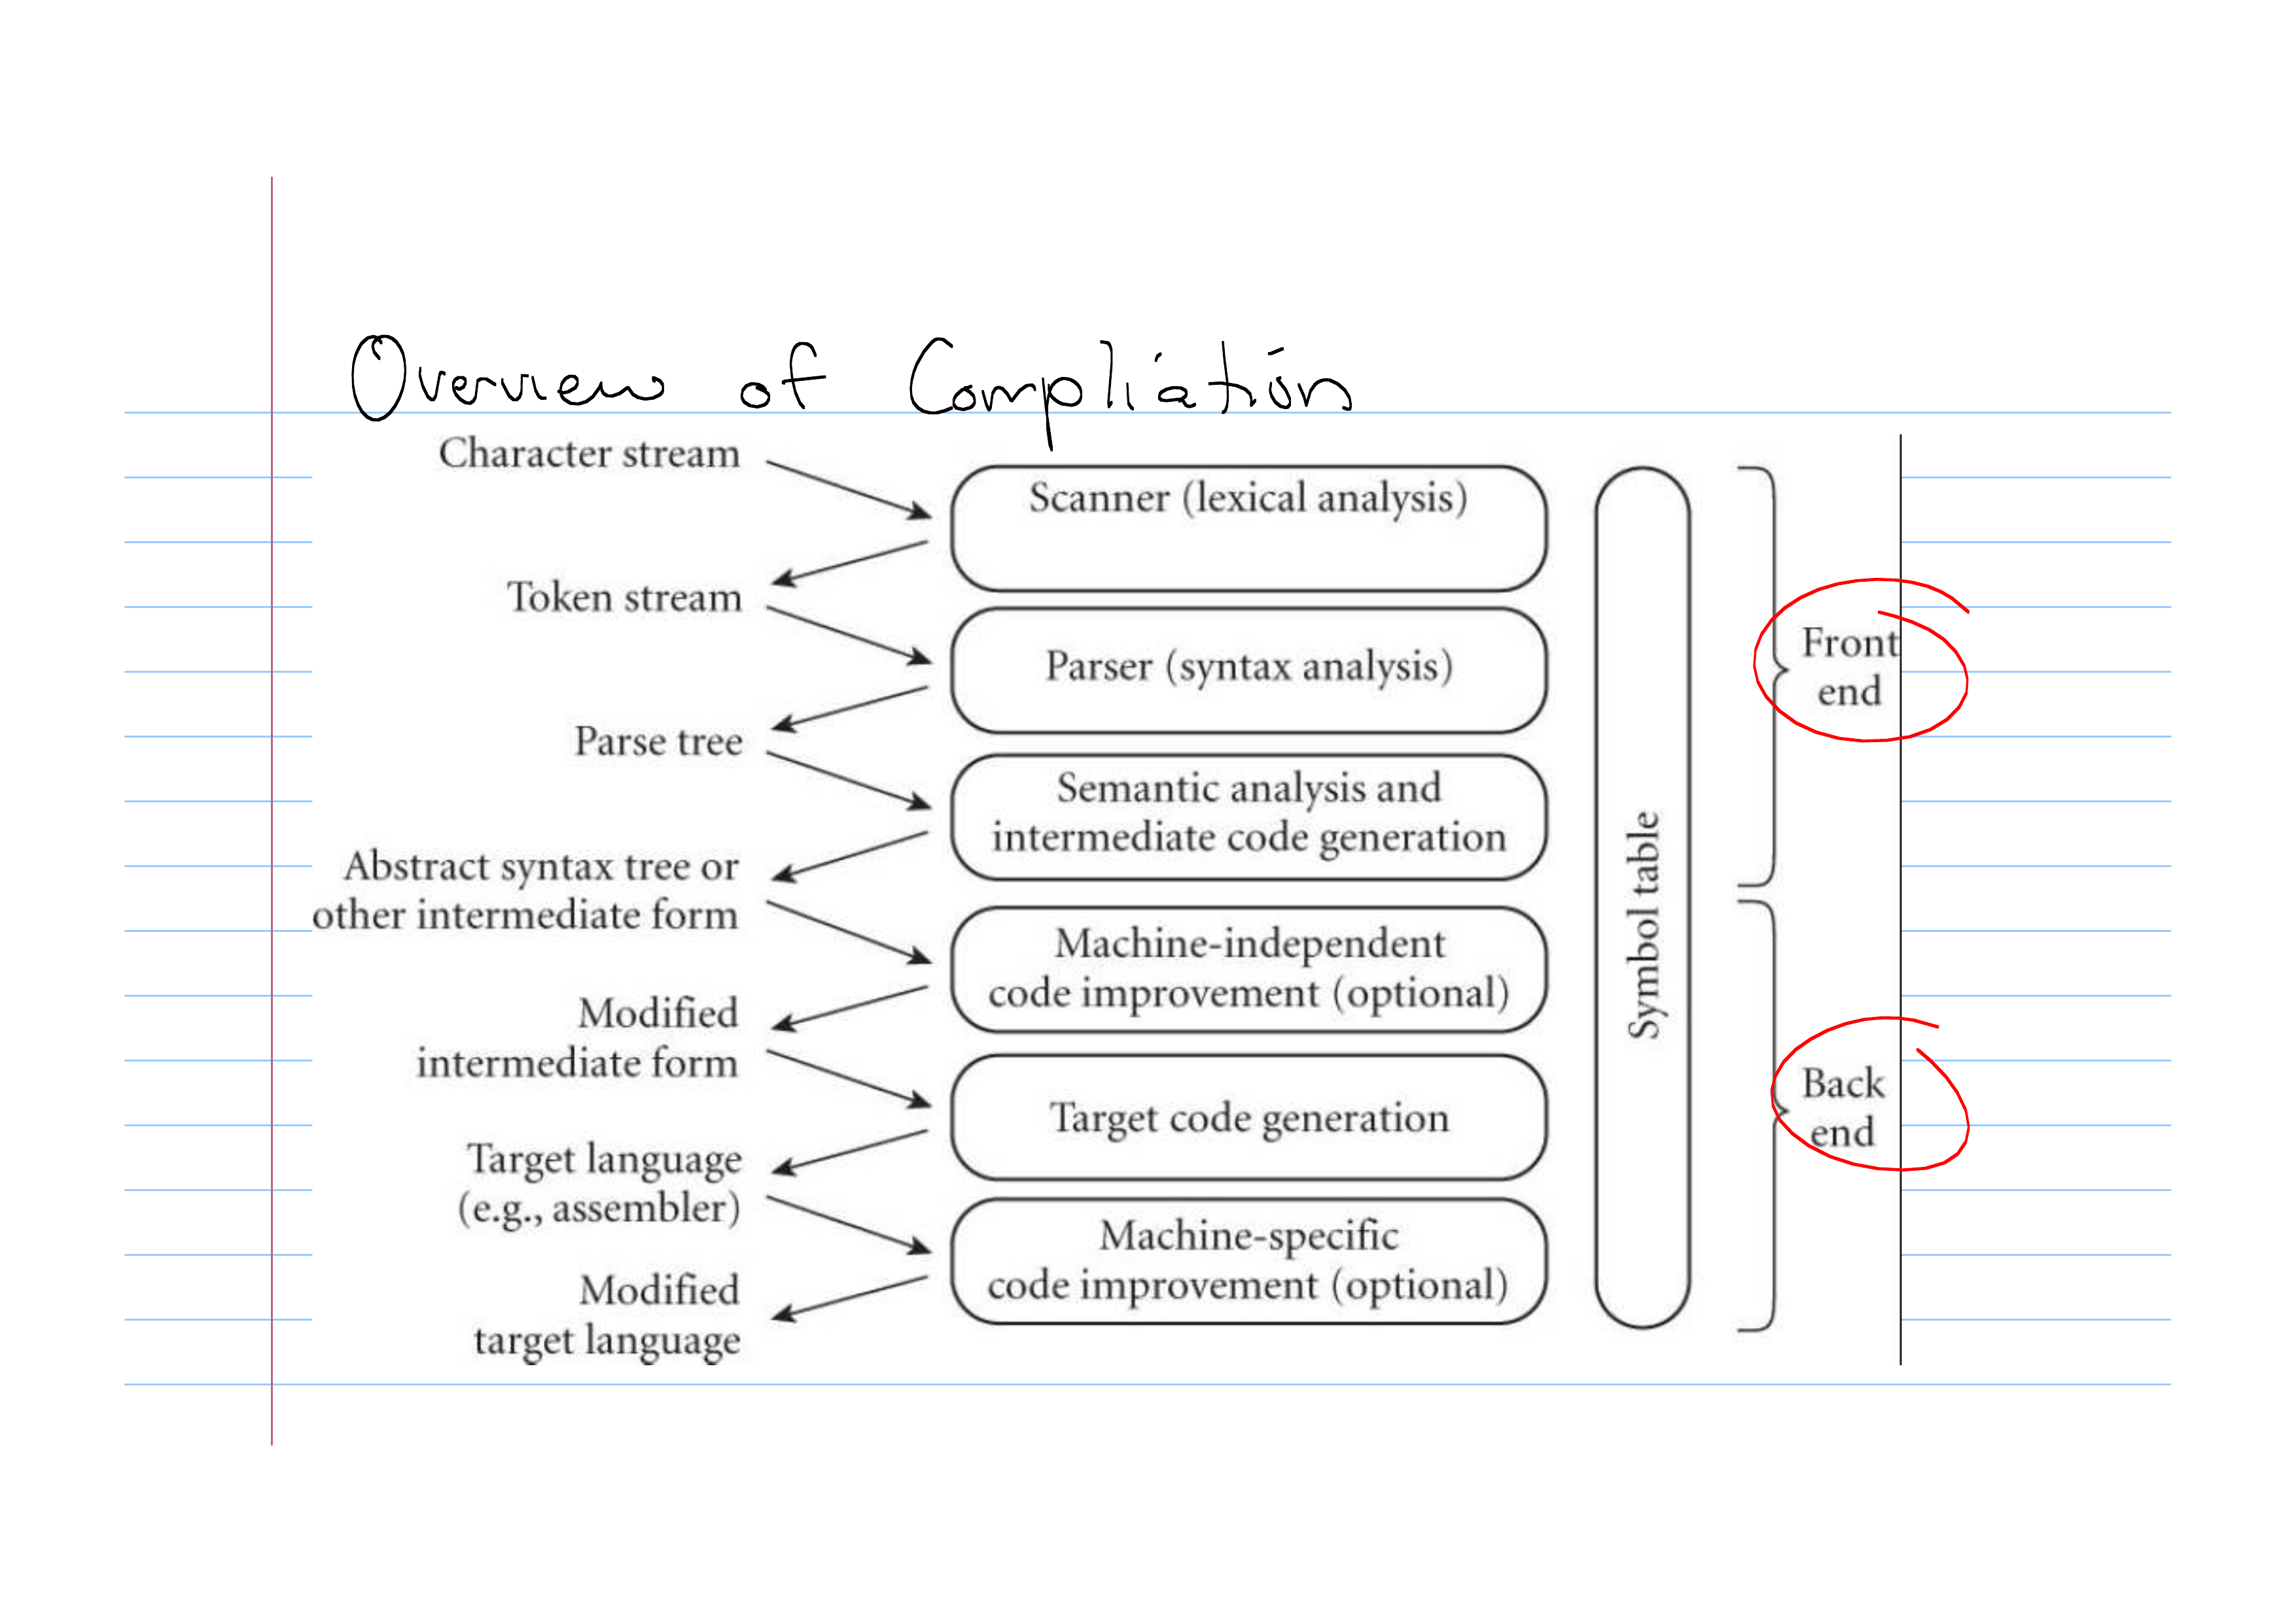 Overview of Compliation
Character stream
Scanner (lexical analysis)
Token stream
Parser (syntax analysis)
Parse tree
Semantic analysis and
intermediate code generation
Abstract syntax tree or
other intermediate form
Machine-independent
code improvement (optional)
Modified
intermediate form
Target code generation
Target language
(e.g., assembler)
Machine-specific
code improvement (optional)
Modified
target language
Symbol table
Front
end
Back
end